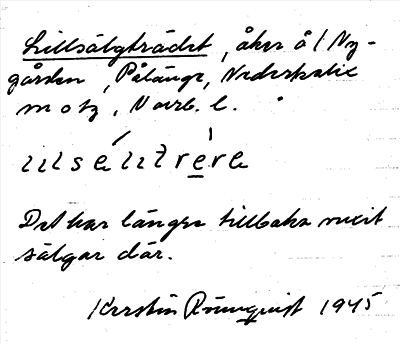 Lillsälgträdet, åker å / Ny-
gården, Pålänge, Nederkalix
sn o tg, Norrb. l.
Det har längre tillbaka växt
sälgar där.
Kerstin Rönnqvist 1945